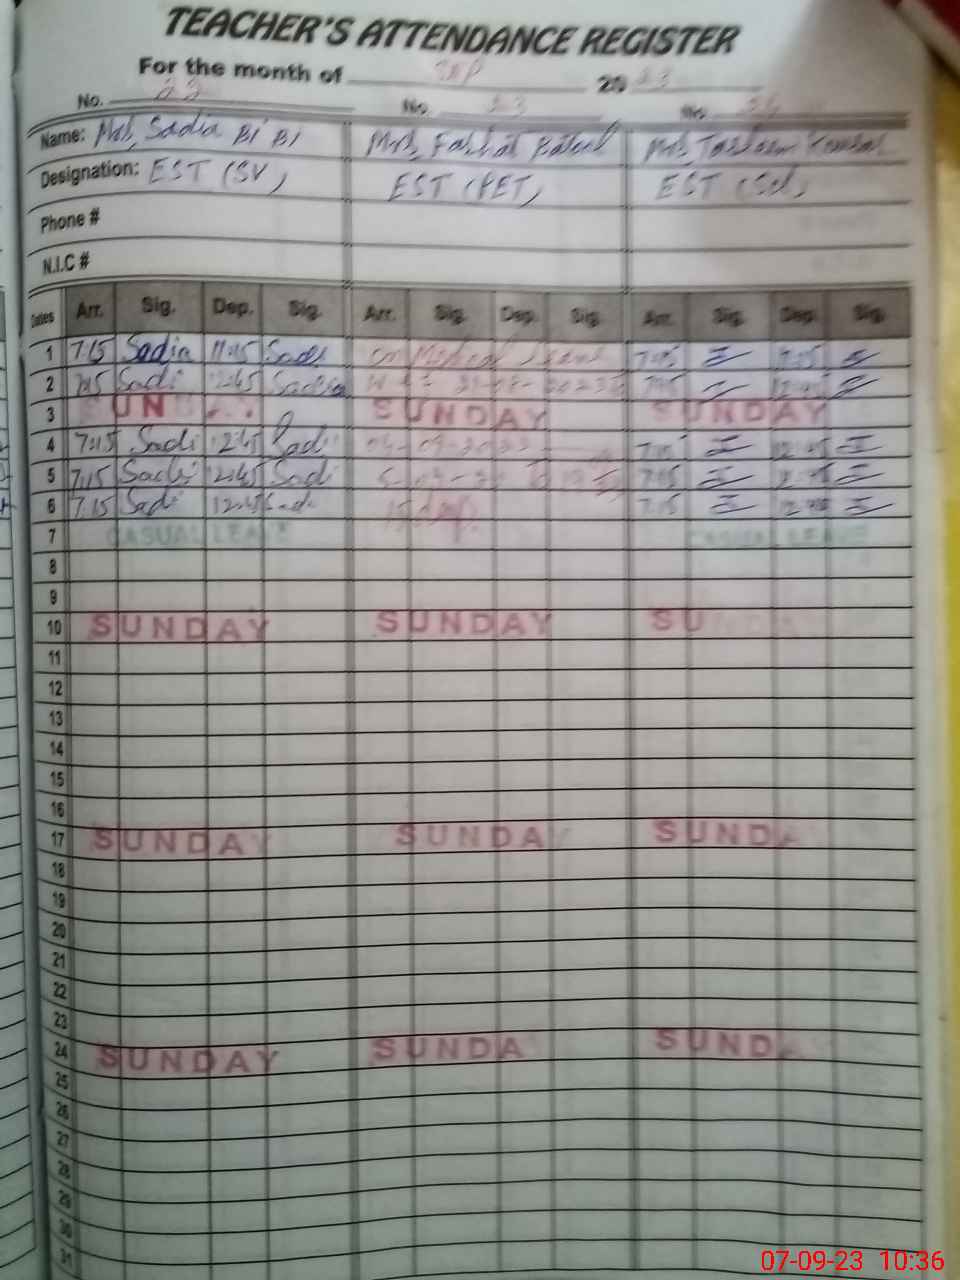 TEACHER'S ATTENDANCE REGISTER
For the month of Sep 20 23
No. No. 23 No.
Name: Mrs, Sadia Bi Bi Mrs, Farhat
Designation: EST (SV) EST (PET) EST (Sci)
Phone #
N.I.C #
Dates Arr. Sig. Dep. Sig. Arr. Sig. Dep. Sig. Arr. Sig. Dep. Sig.
1 7:15 Sadia 11:45 Sadi on Medical leave
2 7:15 Sadi 12:45 Sadia
3 SUNDAY SUNDAY SUNDAY
4 7:15 Sadi 12:45 Sadi 04-09-2023 7:15
5 7:15 Sadi 12:45 Sadi 7:15
6 7:15 Sadi 12:45 Sadi 7:15 12:45
7 CASUAL LEAVE CASUAL LEAVE
8
9
10 SUNDAY SUNDAY SU
11
12
13
14
15
16
17 SUNDAY SUNDAY SUNDA
18
19
20
21
22
23
24 SUNDAY SUNDA SUND
25
26
27
28
29
30
31
07-09-23 10:36